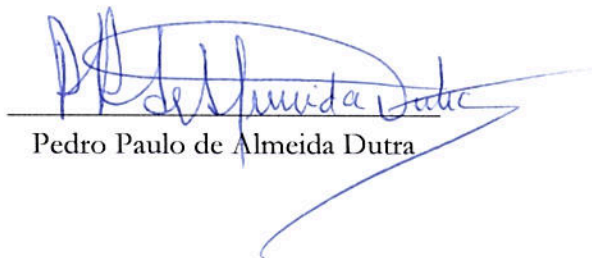 PP de Almeida Dutra
Pedro Paulo de Almeida Dutra